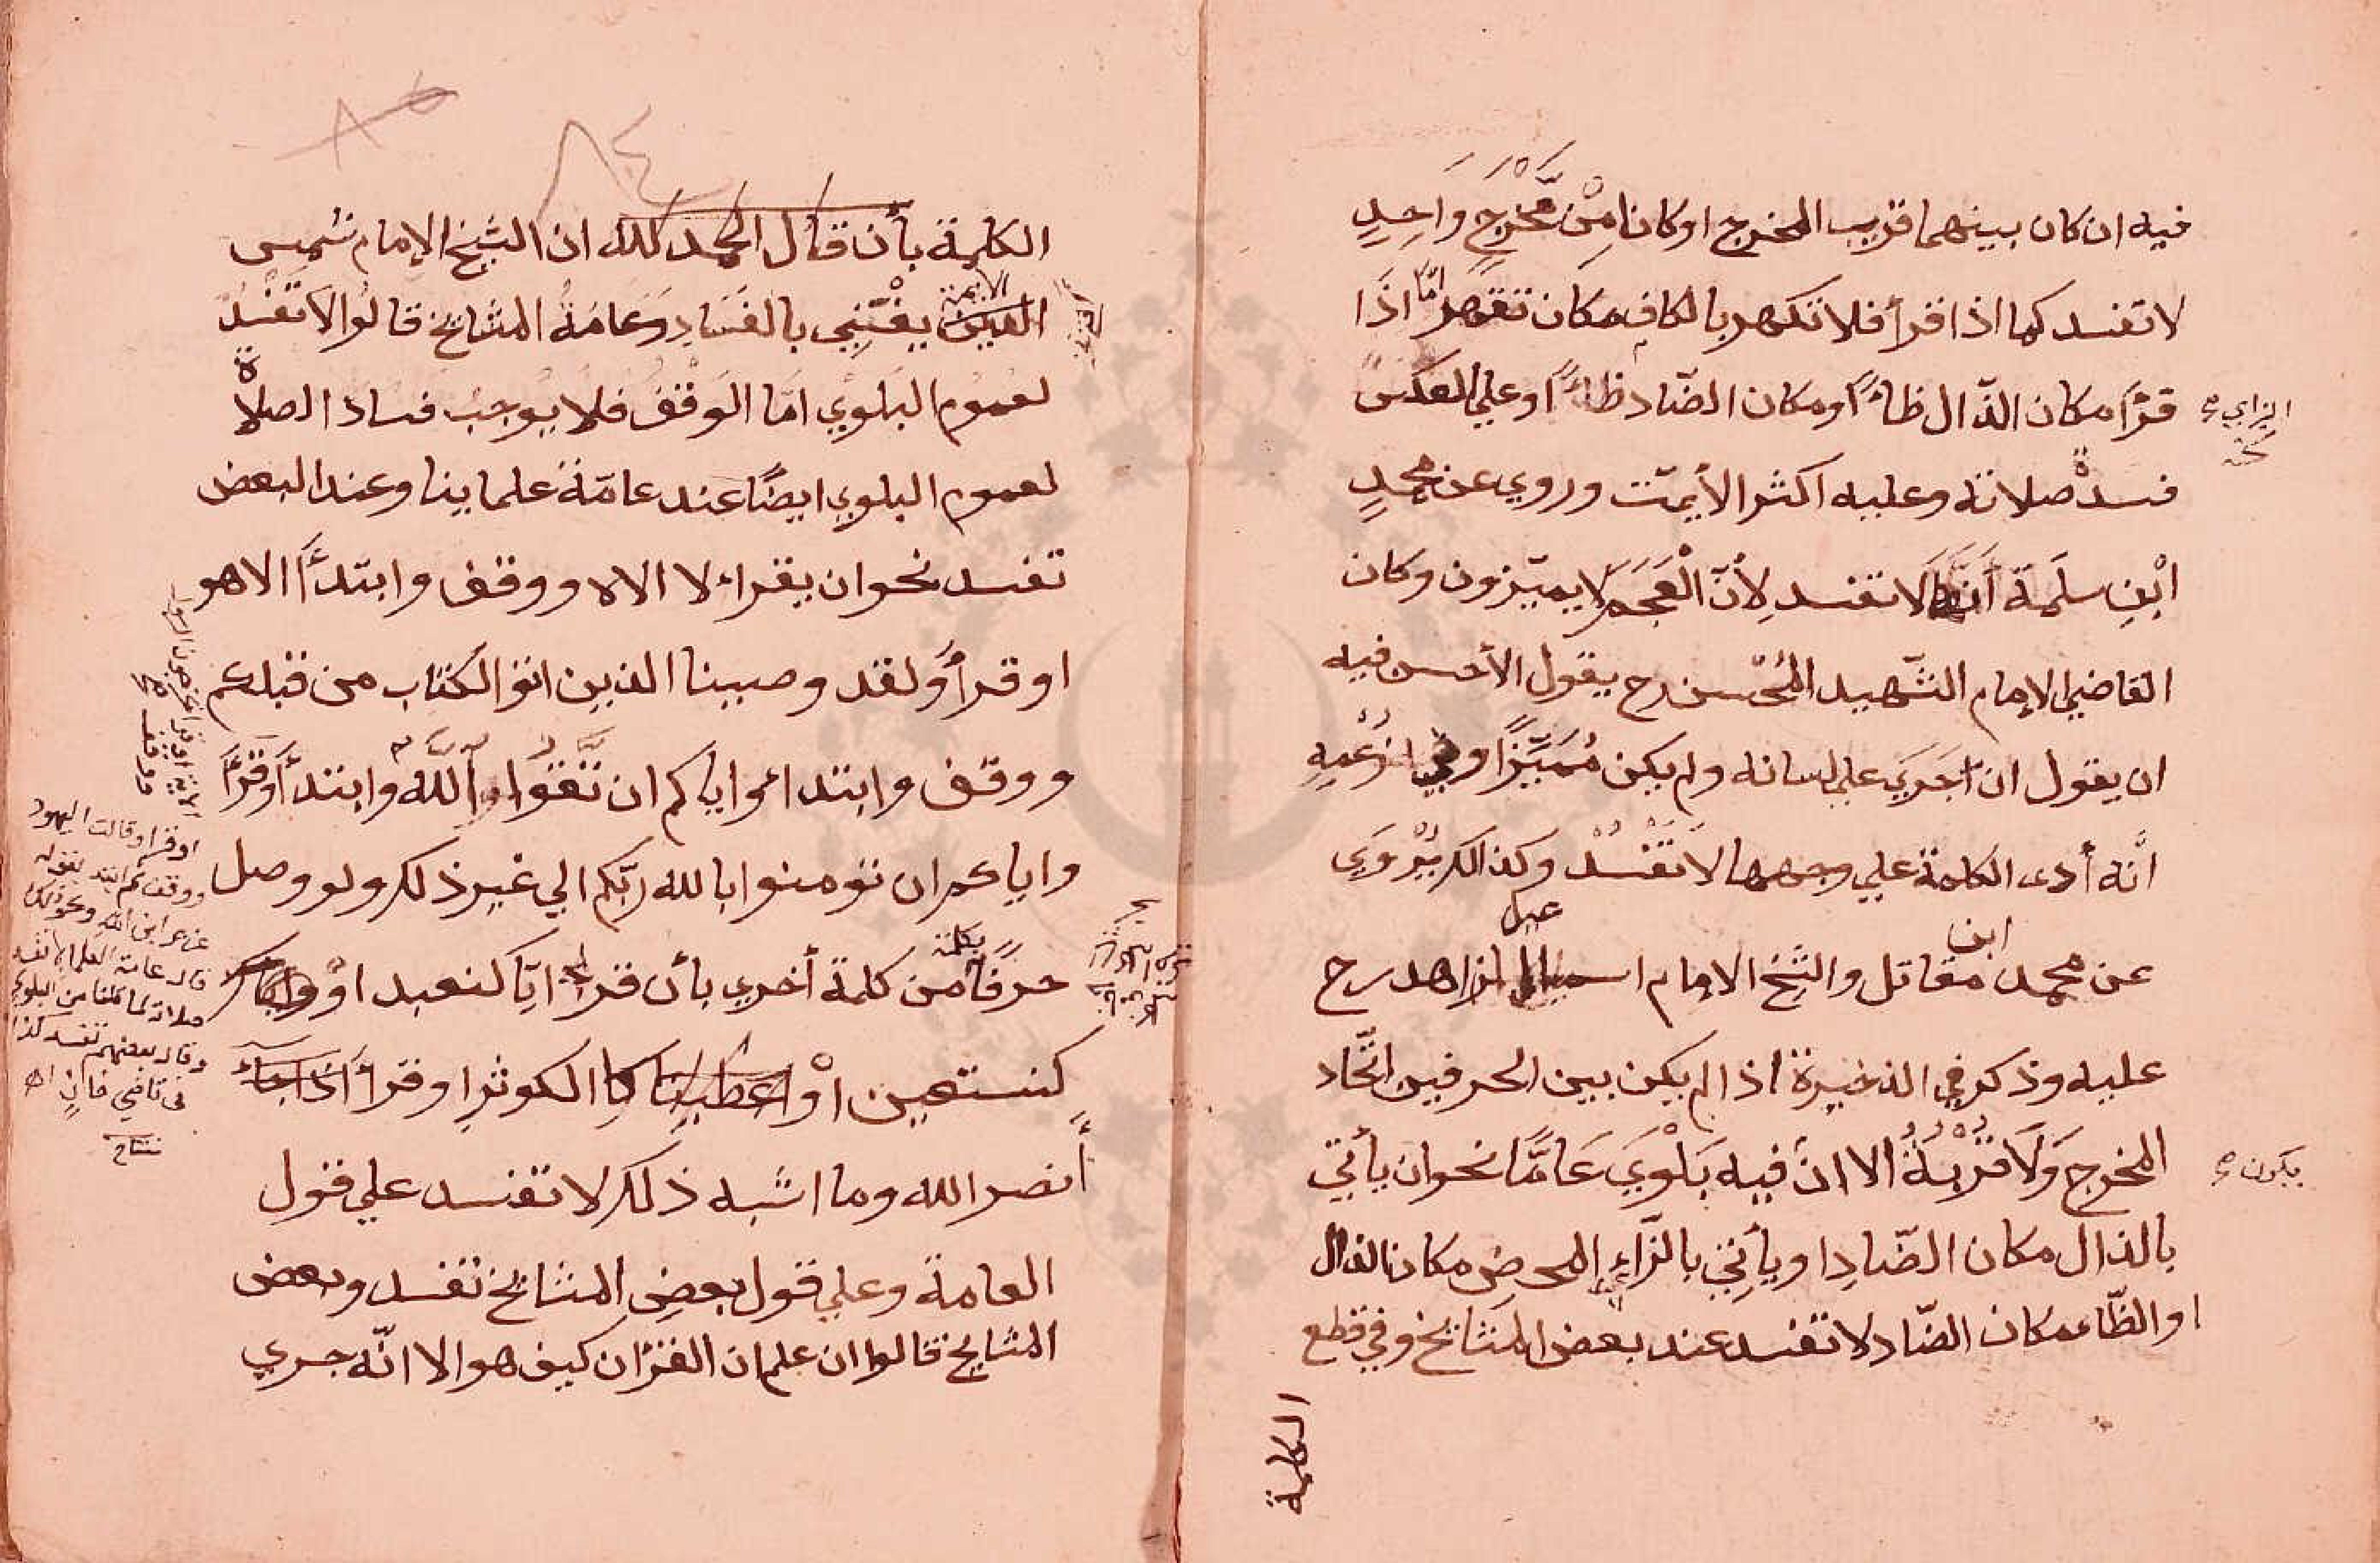 فيه ان كان بينهما قريب المخرج او كانا مِنْ مَّخْرَجٍ وَاحِدٍ
لا تفسد كما اذا قرأ فلا تكهر بالكاف مكان تقهر امّا اذَا
قرَأ مكان الذّال ظاءً او مكان الضّاد ظاءً او علي العكس
الزاي
فسدة صلاته وعليه اكثر الأيمّت وروي عن محمدٍ
ابْنِ سلَمة أنها لَا تفسد لِأنّ الْعَجَمَ لا يميّزون وكان
القاضي الإمام الشّهيد المُحْسن رح يقول الأحسن فيه
ان يقول ان جَرَيَ علي لسانه ولم يكن مُمَيِّزًا وفِي زُعْمِهِ
انَّه أدى الكلمة علي وجهها لَا تَفْسُدْ وكذالك يُرْوَي
عن محمد ابن مقاتل والشّخ الامام اسمعيل الزاهد رح
عليه وذكر في الذخيرة اذا لم يكن بين الحرفين اتّحاد
المخرج وَلَا قُرْبَةُ الا انّ فيه بَلْوَيَ عَامًّا نحو ان يأتي
يكون
بالذال مكان الضّادِ او يأتِيَ بالزّاءِ المحرضِ مكان الذال
او الظّاء مكان الضّاد لا تفسد عند بعض المَشايخ وفي قطع
الكلمة
٨٤
الكلمة بأن قال الحمد لله ان الشيخ الإمام شمس
الائمة يفْتِي بالفَسَادِ وَعَامَةُ المشايخ قالُوا لَا تَفْسُدُ
لعموم البلوي امّا الوَقْفُ فلا يوجبُ فساد الصلاة
لعموم البلوي ايضًا عند عامّة علماينا وعند البعض
تفسد نحو ان يقراء لا الاه ووقف وابتدأ الا هو
او قرأ ولقد وصيينا الذين اتو الكتاب من قبلهم
ووقف وابتدا واياكم ان تَّقُوا اللَّه وابتدأ او قرَأ
واياكم ان تؤمنوا بالله ربّكم الي غير ذلك ولو وصل
حرفًا من كلمة بكلمة أخري بأن قرأ ايّا كنعبد اوْ وايا
كنستعين اوْ اعطينا كا الكوثر او قرأ اذا جاء
أنصر الله وما اشبه ذلك لا تفسد علي قول
العامة وعلي قول بعضِ المشايخ تفسد وبعض
المشايخ قالوا ان علم ان القرْان كيف هو الا انّه جري
او قرا وقالت اليهود
ووقف ثم ابتد بقوله
عزير ابن الله ونحو ذلك
قال عامة العلما لا تفسد
صلاته لما قلنا من البلوي
وقال بعضهم تفسد كذا
في قاضي خان اه